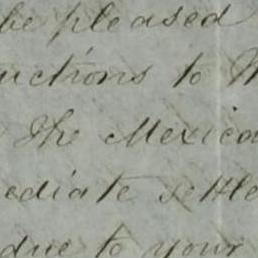 be pleased
uctions to
The Mexica
ediate settle
due to your